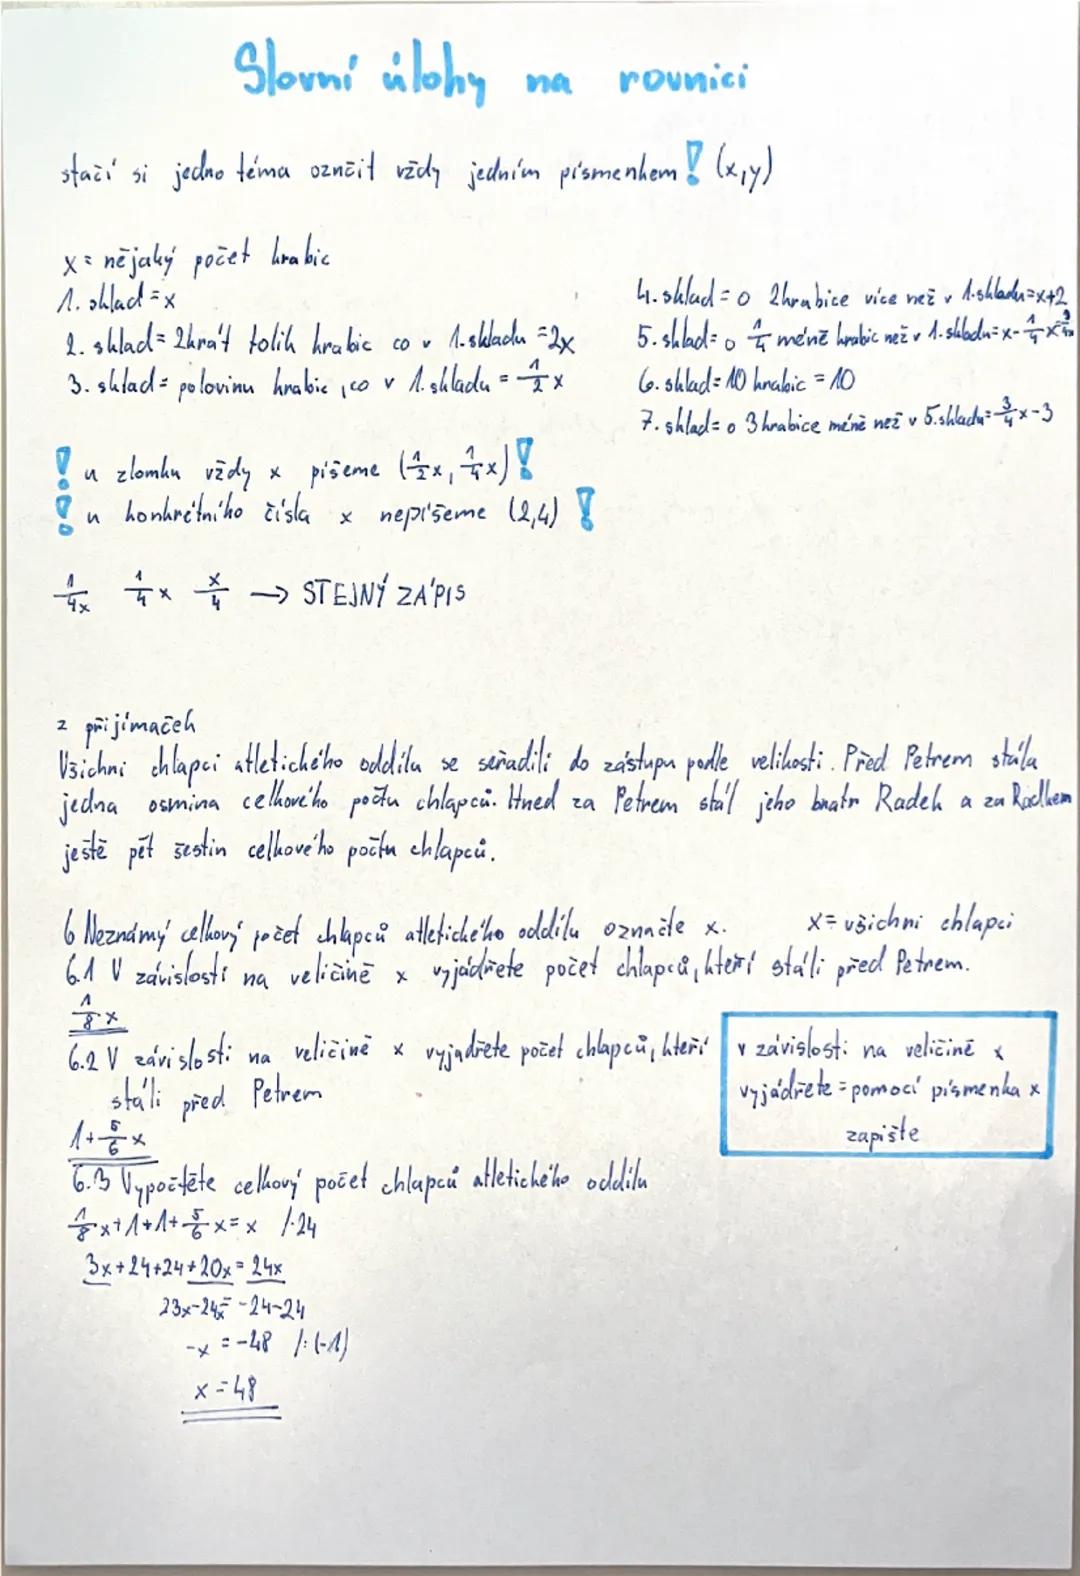 Slovní úlohy na rovnici
stačí si jedno téma oznčit vždy jedním písmenkem! (x,y)
x = nějaký počet krabic
1. sklad = x
2. sklad = 2krát tolik krabic co v 1. skladu = 2x
3. sklad = polovinu krabic, co v 1. skladu = 1/2 x
4. sklad = o 2krabice více než v 1. skladu = x+2
5. sklad = o 1/4 méně krabic než v 1. skladu = x - 1/4 x = 3/4x
6. sklad = 10 krabic = 10
7. sklad = o 3 krabice méně než v 5. skladu = 3/4 x - 3
! u zlomku vždy x píšeme (1/2 x, 1/4 x) !
! u konkrétního čísla x nepíšeme (2,4) !
1/4x 1/4 x x/4 → STEJNÝ ZÁPIS
z přijímaček
Všichni chlapci atletického oddílu se seřadili do zástupu podle velikosti. Před Petrem stála
jedna osmina celkového počtu chlapců. Hned za Petrem stál jeho bratr Radek a za Radkem
ještě pět šestin celkového počtu chlapců.
6 Neznámý celkový počet chlapců atletického oddílu označte x.
x = všichni chlapci
6.1 V závislosti na veličině x vyjádřete počet chlapců, kteří stáli před Petrem.
1/8 x
6.2 V závislosti na veličině x vyjadřete počet chlapců, kteří
stáli před Petrem
1 + 5/6 x
v závislosti na veličině x
vyjádřete = pomocí písmenka x
zapište
6.3 Vypočtěte celkový počet chlapců atletického oddílu
1/8 x + 1 + 1 + 5/6 x = x /·24
3x + 24 + 24 + 20x = 24x
23x - 24x = -24 - 24
-x = -48 /:(-1)
x = 48